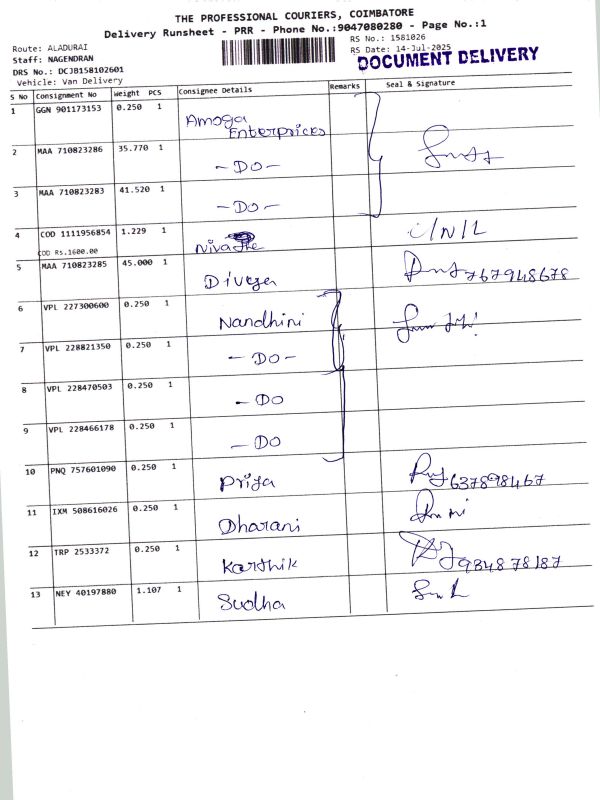 THE PROFESSIONAL COURIERS, COIMBATORE
Delivery Runsheet - PRR - Phone No.:9047080280 - Page No.:1
Route: ALADURAI
RS No.: 1581026
Staff: NAGENDRAN
RS Date: 14-Jul-2025
DOCUMENT DELIVERY
DRS No.: DCJB158102601
Vehicle: Van Delivery
S No Consignment No Weight PCS Consignee Details Remarks Seal & Signature
1 GGN 901173153 0.250 1 Amoga Enterprices
2 MAA 710823286 35.770 1 - DO -
3 MAA 710823283 41.520 1 - DO -
4 COD 1111956854 1.229 1 C/N/L
COD Rs.1600.00
5 MAA 710823285 45.000 1 767948678
6 VPL 227300600 0.250 1 Nandhini
7 VPL 228821350 0.250 1 - DO -
8 VPL 228470503 0.250 1 - DO
9 VPL 228466178 0.250 1 - DO
10 PNQ 757601090 0.250 1 Priya 637898467
11 IXM 508616026 0.250 1 Dharani
12 TRP 2533372 0.250 1 Karthik 984878187
13 NEY 40197880 1.107 1 Sudha